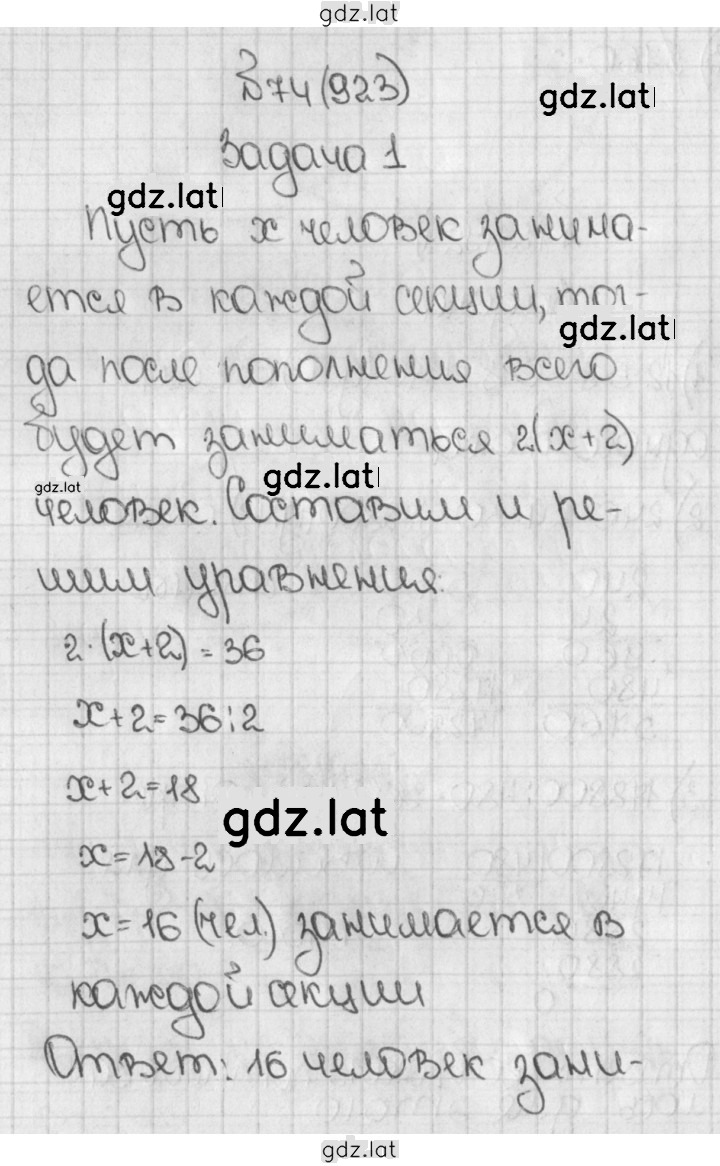 gdz.lat
№74(923)
gdz.lat
Задача 1
gdz.lat
Пусть x человек занима-
ется в каждой секции, тог-
gdz.lat
да после пополнения всего
будет заниматься 2(x+2)
gdz.lat
gdz.lat
человек. Составим и ре-
шим уравнения:
2·(x+2) = 36
x+2=36:2
x+2=18
gdz.lat
x=18-2
x=16 (чел.) занимается в
каждой секции
Ответ: 16 человек зани-
gdz.lat